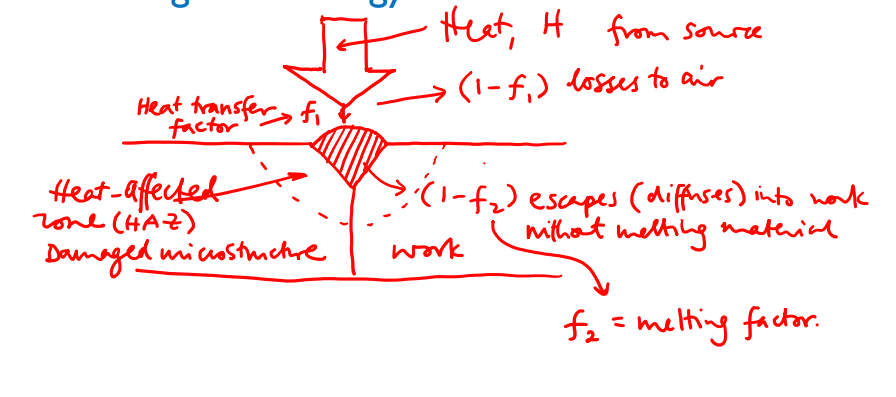 Heat, H from source
(1-f₁) losses to air
Heat transfer
factor
f₁
Heat-affected
zone (HAZ)
Damaged microstructure
(1-f₂) escapes (diffuses) into work
without melting material
work
f₂ = melting factor.